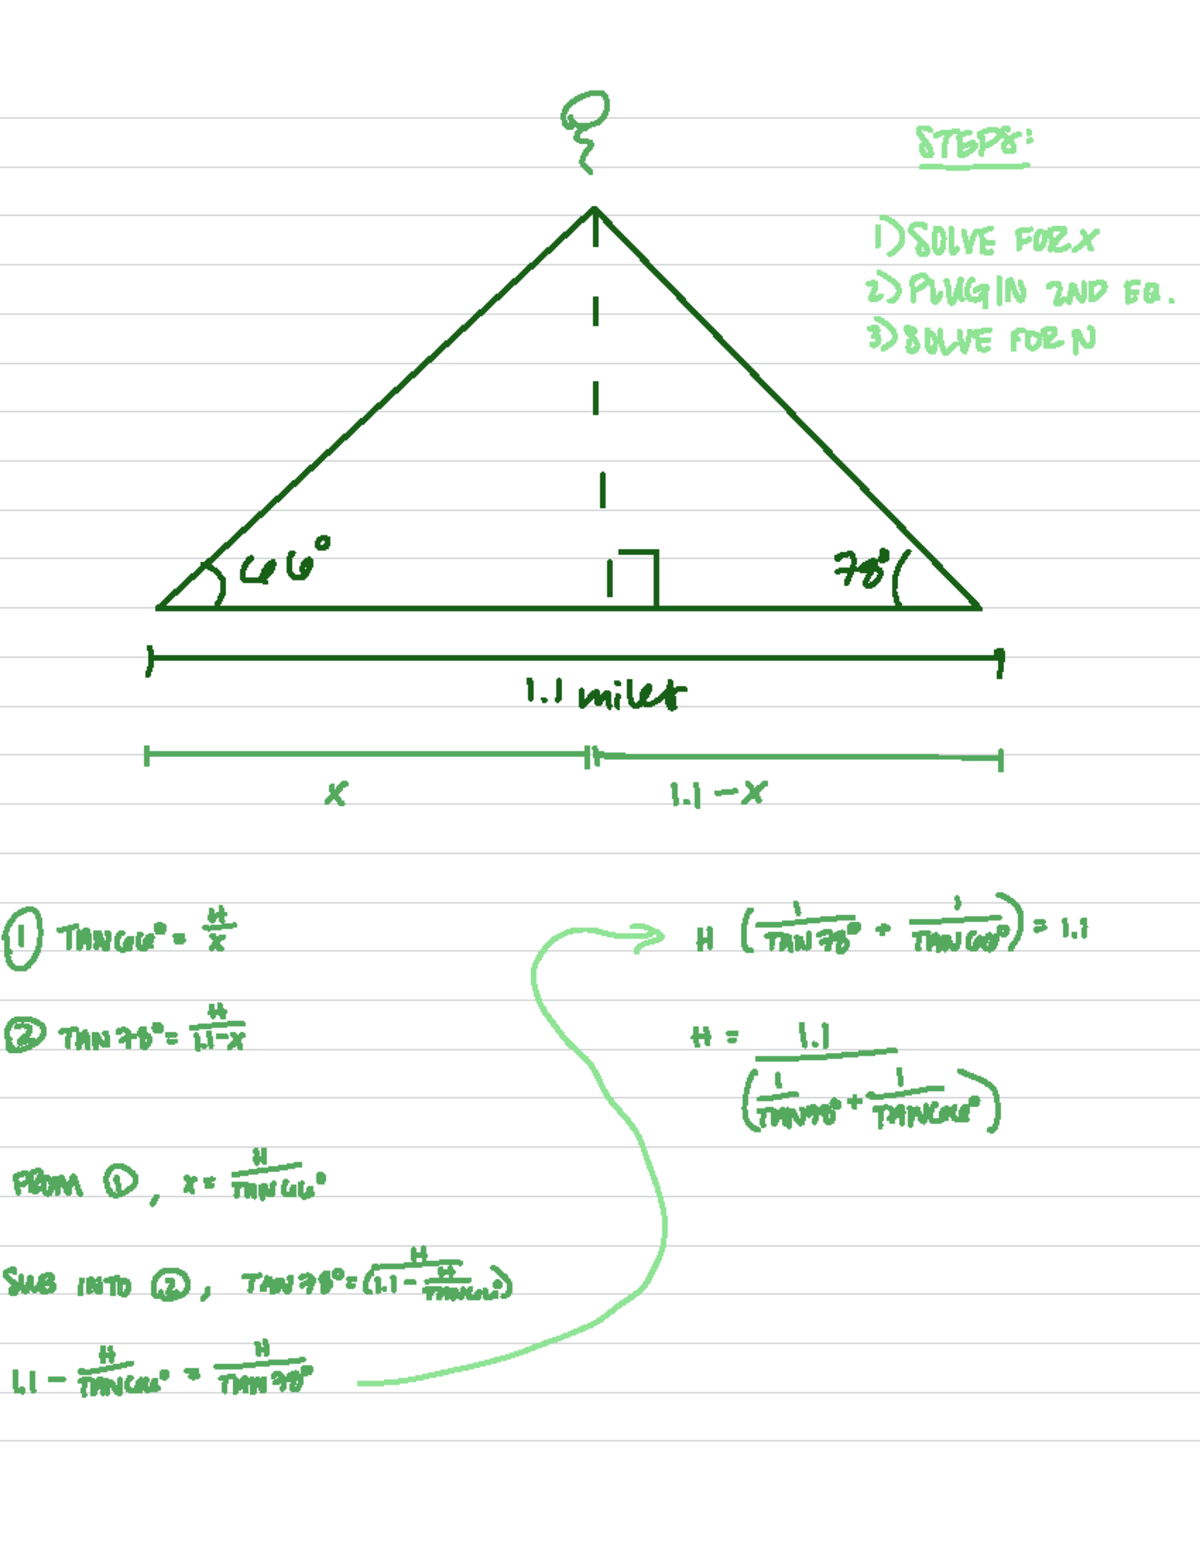 STEPS:
1) SOLVE FOR X
2) PLUG IN 2ND EQ.
3) SOLVE FOR N
66°
78°
1.1 miles
x
1.1 - x
① TAN66° = H/x
② TAN78° = H/1.1-x
FROM ①, x = H/TAN66°
SUB INTO ②, TAN78° = (H/1.1 - H/TAN66°)
1.1 - H/TAN66° = H/TAN78°
H (1/TAN78° + 1/TAN66°) = 1.1
H = 1.1/(1/TAN78° + 1/TAN66°)